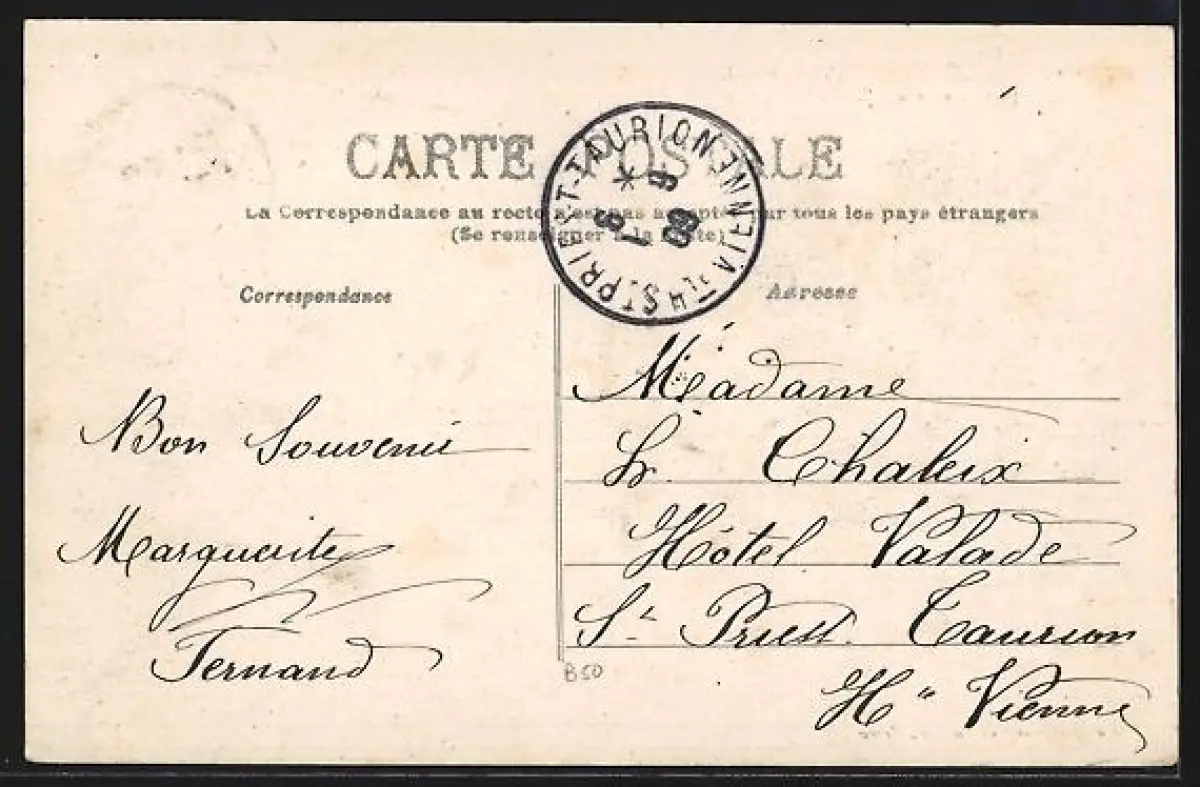 CARTE POSTALE
La Correspondance au recto n'est pas acceptée par tous les pays étrangers
(Se renseigner à la Poste)
ST PRIEST-TAURION * HTE VIENNE
9
09
Correspondance
Adresse
Madame
Chaleix
Hôtel Valade
St Priest Taurion
Hte Vienne
Bon Souvenir
Marguerite
Fernand
B50